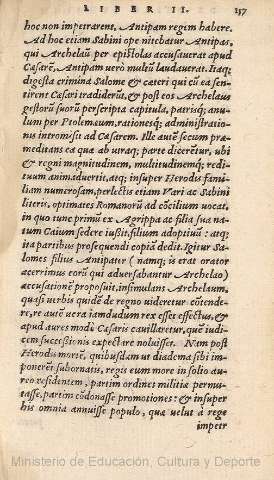 LIBER II. 157
hoc non impetrarent, Antipam regem habere.
Ad hoc etiam Sabini ope nitebatur Antipas,
qui Archelaũ per epistolas accusauerat apud
Cæsarẽ, Antipam uerò multũ laudauerat. Itaq;
digesta crimina Salome & cæteri qui cũ ea sen-
tirent Cæsari tradiderũt, & post eos Archelaus
gestorũ suorũ perscripta capitula, patrisq; anu-
lum per Ptolemæum, rationesq; administratio-
nis intromisit ad Cæsarem. Ille autẽ secum præ-
meditans ea quæ ab utraq; parte dicerẽtur, ubi
& regni magnitudinem, multitudinemq; redi-
tuum animaduertit, atq; insuper Herodis fami-
liam numerosam, perlectis etiam Vari ac Sabini
literis, optimates Romanorũ ad cõcilium uocat,
in quo tunc primũ ex Agrippa ac filia sua na-
tum Caium sedere iußit, filium adoptiuũ: atq;
ita partibus prosequendi copiã dedit. Igitur Sa-
lomes filius Antipater (namq; is erat orator
acerrimus eorũ qui aduersabantur Archelao)
accusationẽ proposuit, insimulans Archelaum,
quasi uerbis quidẽ de regno uideretur cõtende-
re, re autẽ uera iamdudum rex esset effectus, &
apud aures modò Cæsaris cauillaretur, quẽ iudi-
cem successionis expectare noluisset. Nam post
Herodis mortẽ, quibusdam ut diadema sibi im-
ponerẽt subornatis, regis eum more in solio au-
reo residentem, partim ordines militiæ permu-
tasse, partim cõdonasse promotiones: & insuper
his omnia annuisse populo, quæ uelut à rege
impetr
Ministerio de Educación, Cultura y Deporte